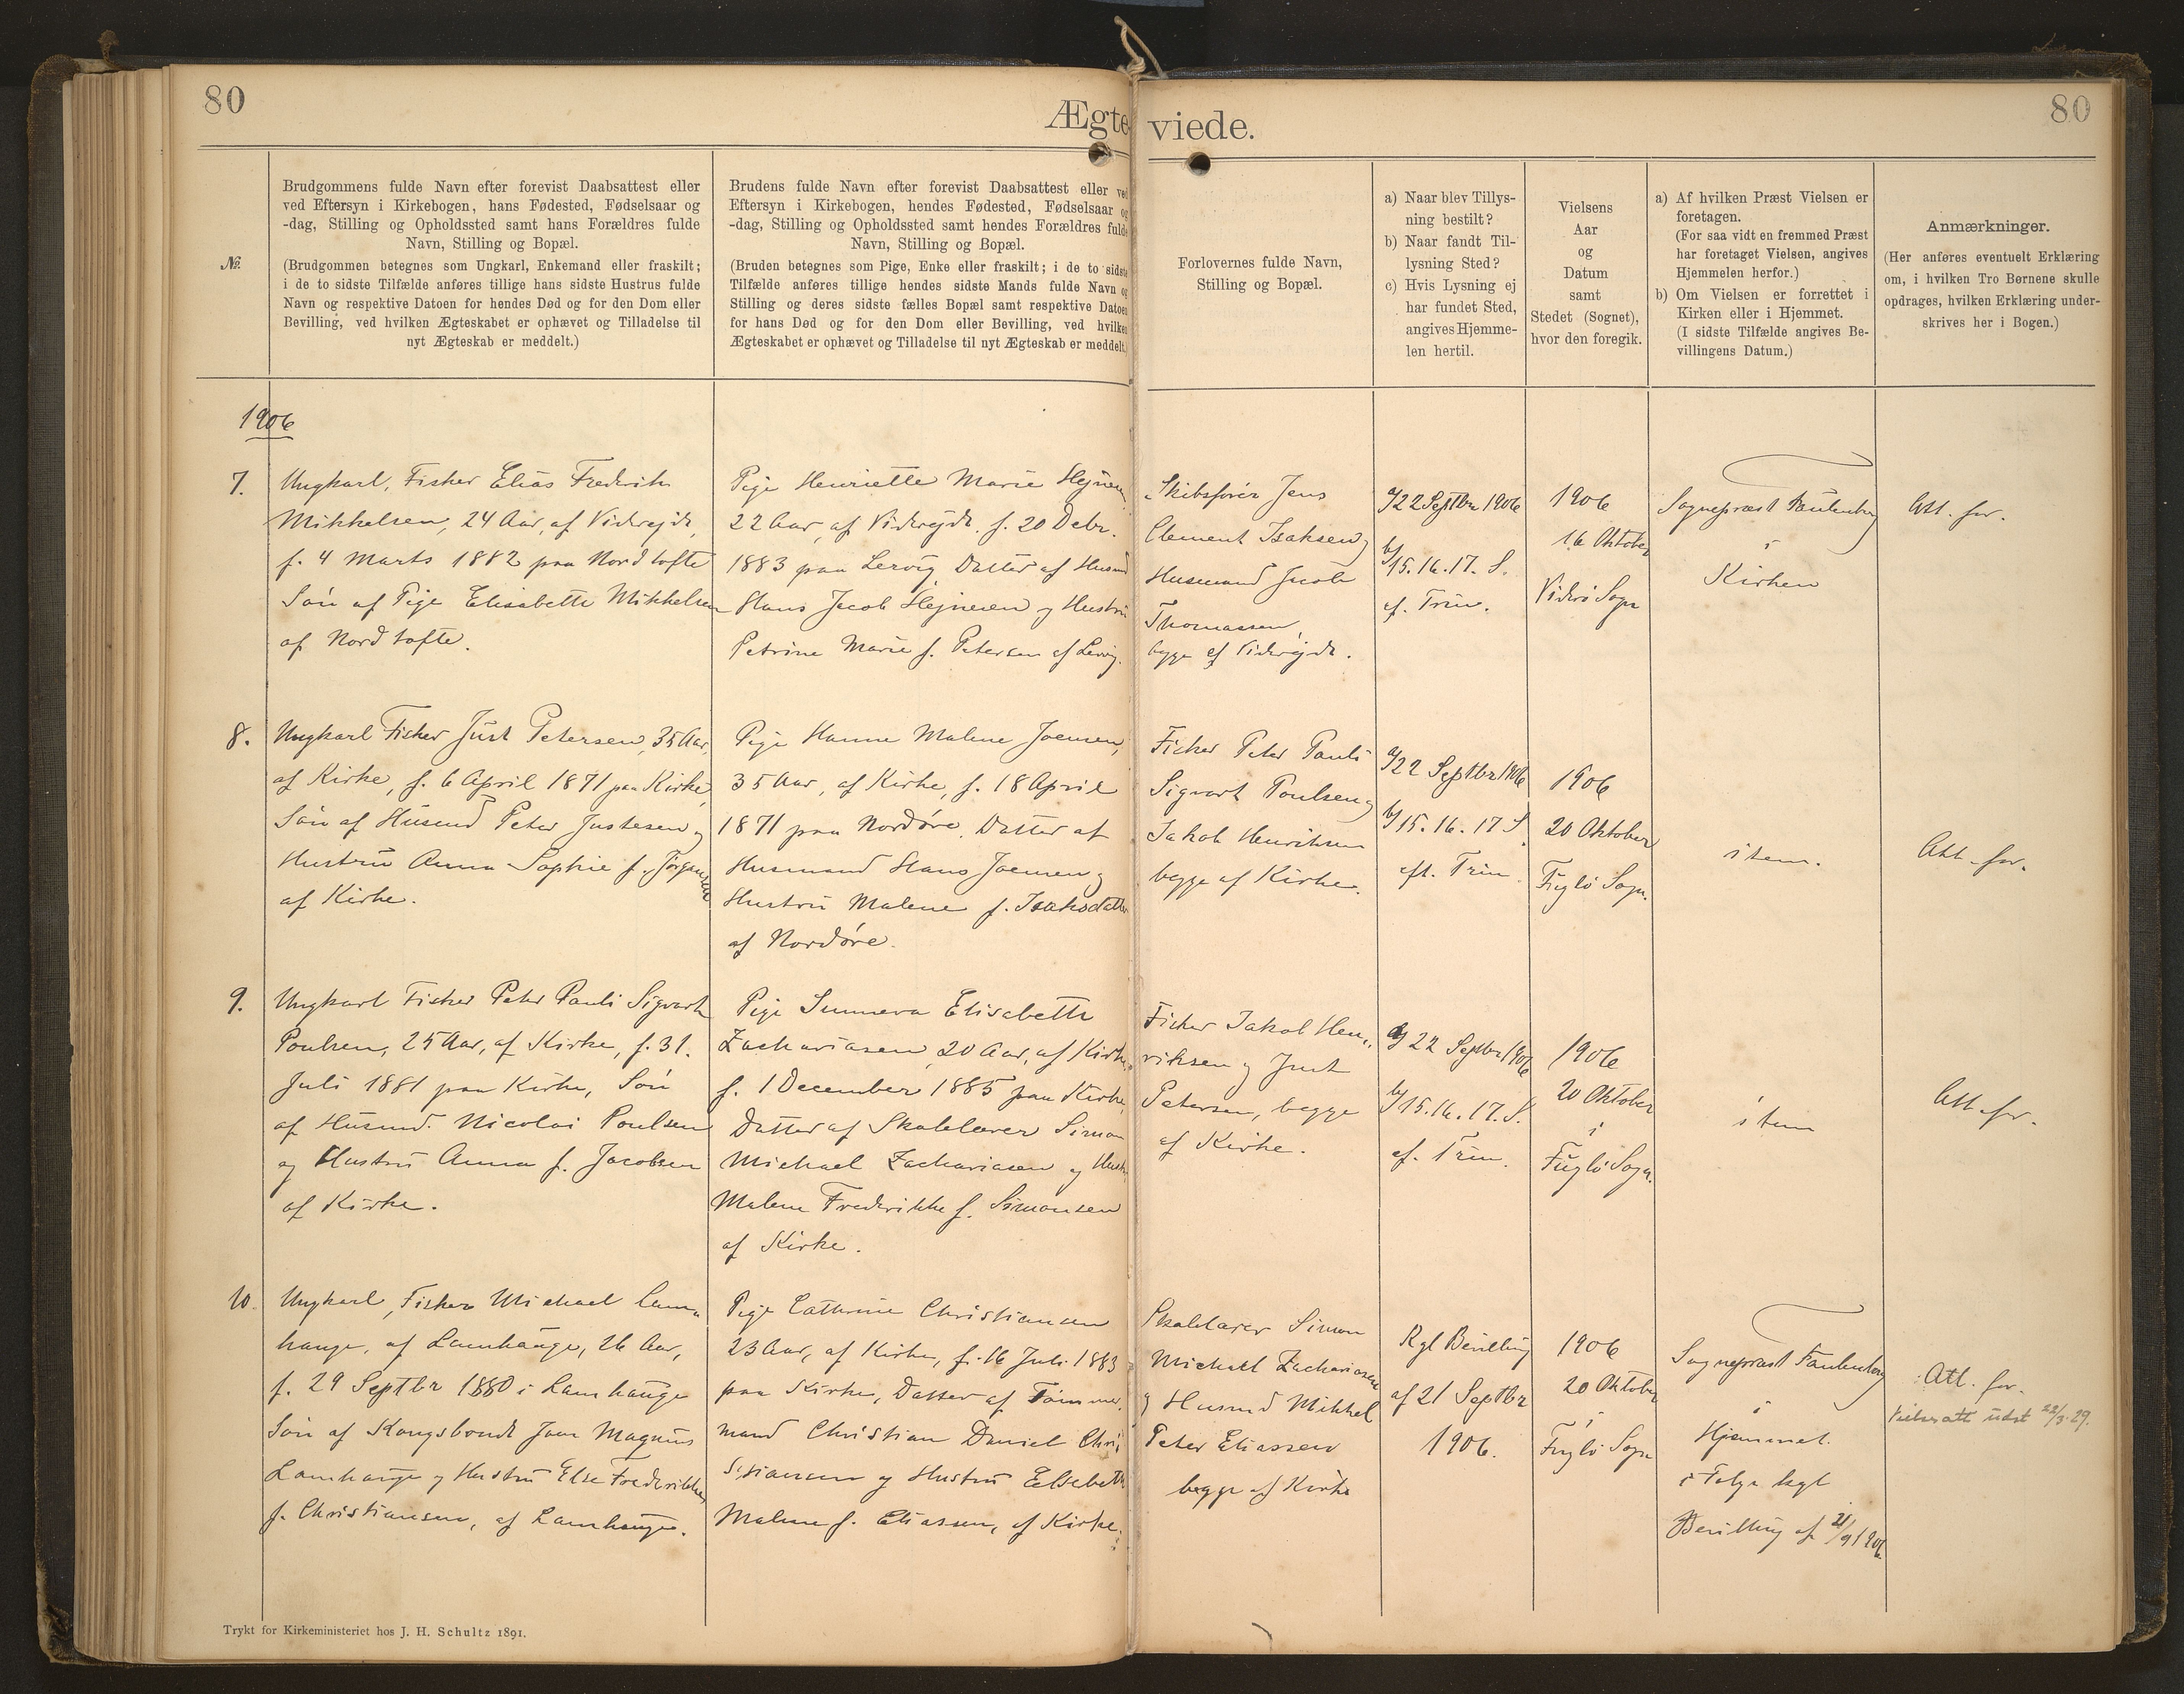 80
Ægteviede.
80
№
Brudgommens fulde Navn efter forevist Daabsattest eller
ved Eftersyn i Kirkebogen, hans Fødested, Fødselsaar og
-dag, Stilling og Opholdssted samt hans Forældres fulde
Navn, Stilling og Bopæl.
(Brudgommen betegnes som Ungkarl, Enkemand eller fraskilt;
i de to sidste Tilfælde anføres tillige hans sidste Hustrus fulde
Navn og respektive Datoen for hendes Død og for den Dom eller
Bevilling, ved hvilken Ægteskabet er ophævet og Tilladelse til
nyt Ægteskab er meddelt.)
Brudens fulde Navn efter forevist Daabsattest eller ved
Eftersyn i Kirkebogen, hendes Fødested, Fødselsaar og
-dag, Stilling og Opholdssted samt hendes Forældres fulde
Navn, Stilling og Bopæl.
(Bruden betegnes som Pige, Enke eller fraskilt; i de to sidste
Tilfælde anføres tillige hendes sidste Mands fulde Navn og
Stilling og deres sidste fælles Bopæl samt respektive Datoen
for hans Død og for den Dom eller Bevilling, ved hvilken
Ægteskabet er ophævet og Tilladelse til nyt Ægteskab er meddelt.)
Forlovernes fulde Navn,
Stilling og Bopæl.
a) Naar blev Tillys-
ning bestilt?
b) Naar fandt Til-
lysning Sted?
c) Hvis Lysning ej
har fundet Sted,
angives Hjemme-
len hertil.
Vielsens
Aar
og
Datum
samt
Stedet (Sognet),
hvor den foregik.
a) Af hvilken Præst Vielsen er
foretagen.
(For saa vidt en fremmed Præst
har foretaget Vielsen, angives
Hjemmelen herfor.)
b) Om Vielsen er forrettet i
Kirken eller i Hjemmet.
(I sidste Tilfælde angives Be-
villingens Datum.)
Anmærkninger.
(Her anføres eventuelt Erklæring
om, i hvilken Tro Børnene skulle
opdrages, hvilken Erklæring under-
skrives her i Bogen.)
1906
7.
Ungkarl, Fisker Elias Frederik
Mikkelsen, 24 Aar, af Viderejde,
f. 4 Marts 1882 paa Nordtofte
Søn af Pige Elisabeth Mikkelsen
af Nordtofte.
Pige Henriette Marie Hejnesen,
22 Aar, af Viderejde. f. 20 Debr.
1883 paa Lervig, Datter af Husmd
Hans Jacob Hejnesen og Hustru
Petrine Marie f. Petersen af Lervig.
Skibsfører Jens
Clement Isaksen og
Husmand Jacob
Thomassen,
begge af Viderejde.
a/ 22 Septbr 1906
b/ 15. 16. 17. S.
ef. Trin.
1906
16 Oktober
Viderø Sogn
Sognepræst
i
Kirken
Att. for.
8.
Ungkarl Fisker Just Petersen, 35 Aar,
af Kirke, f. 6 April 1871 paa Kirke,
Søn af Husmd Peter Justesen og
Hustru Anna Sophie f. Jørgensen
af Kirke.
Pige Hanne Malene Joensen,
35 Aar, af Kirke, f. 18 April
1871 paa Nordøre, Datter af
Husmand Hans Joensen og
Hustru Malene f. Isaksdatter
af Nordøre.
Fisker Peter Pauli
Sigvart Poulsen og
Jakob Henriksen
begge af Kirke.
a/ 22 Septbr 1906
b/ 15. 16. 17 S
eft. Trin.
1906
20 Oktober
Fuglø Sogn.
item.
Att. for.
9.
Ungkarl Fisker Peter Pauli Sigvart
Poulsen, 25 Aar, af Kirke, f. 31.
Juli 1881 paa Kirke, Søn
af Husmd. Nicolai Poulsen
og Hustru Anna f. Jacobsen
af Kirke.
Pige Sunneva Elisabeth
Zachariasen, 20 Aar, af Kirke,
f. 1 December 1885 paa Kirke,
Datter af Skolelærer Simon
Michael Zachariasen og Hustr.
Malene Frederikke f. Simonsen
af Kirke.
Fisker Jakob Hen-
riksen og Just
Petersen, begge
af Kirke.
a/ 22 Septbr 1906
b/ 15. 16. 17. S.
ef. Trin.
1906
20 Oktober
i
Fuglø Sogn.
item
Att. for.
10.
Ungkarl, Fisker Michael Lam-
hauge, af Lamhauge, 26 Aar,
f. 29 Septbr 1880 i Lamhauge
Søn af Kongsbonde Joen Magnus
Lamhauge og Hustru Else Frederikke
f. Christiansen, af Lamhauge.
Pige Cathrine Christiansen
23 Aar, af Kirke, f. 16 Juli 1883
paa Kirke, Datter af Tømmer-
mand Christian Daniel Chri-
stiansen og Hustru Elsebeth
Malene f. Eliassen, af Kirke.
Skolelærer Simon
Michael Zachariasen
og Husmd Mikkel
Peter Eliassen
begge af Kirke
Kgl Bevilling
af 21 Septbr
1906.
1906
20 Oktober
i
Fuglø Sogn
Sognepræst
i
Hjemmet.
i Følge kgl
Bevilling af 21/9 1906.
Att. for.
Vielsesatt udst 22/3-29.
Trykt for Kirkeministeriet hos J. H. Schultz 1891.